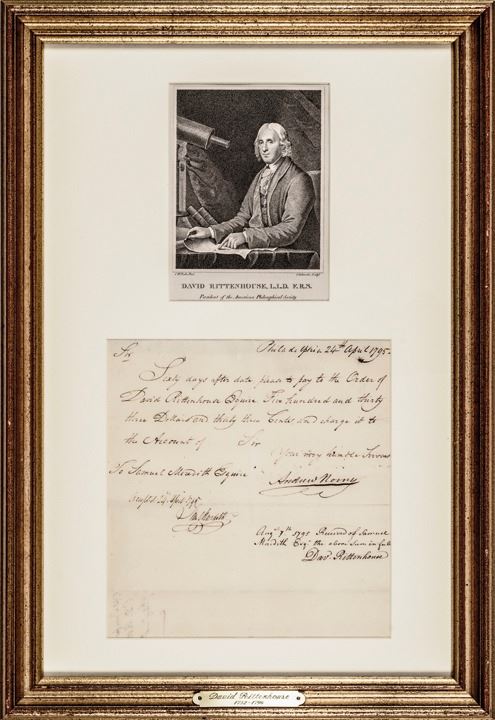 DAVID RITTENHOUSE, L.L.D. F.R.S.
President of the American Philosophical Society.
Philadelphia 24th April 1795.
Sir
Sixty days after date, please to pay to the Order of
David Rittenhouse Esquire Five hundred and thirty
three Dollars and thirty three Cents and charge it to
the Account of Sir
Your very humble Servant
To Samuel Meredith Esquire
Andrew
Augt 7th 1795 Received of Samuel
Meredith Esqr the above Sum in full
Davd Rittenhouse
David Rittenhouse
1732-1796